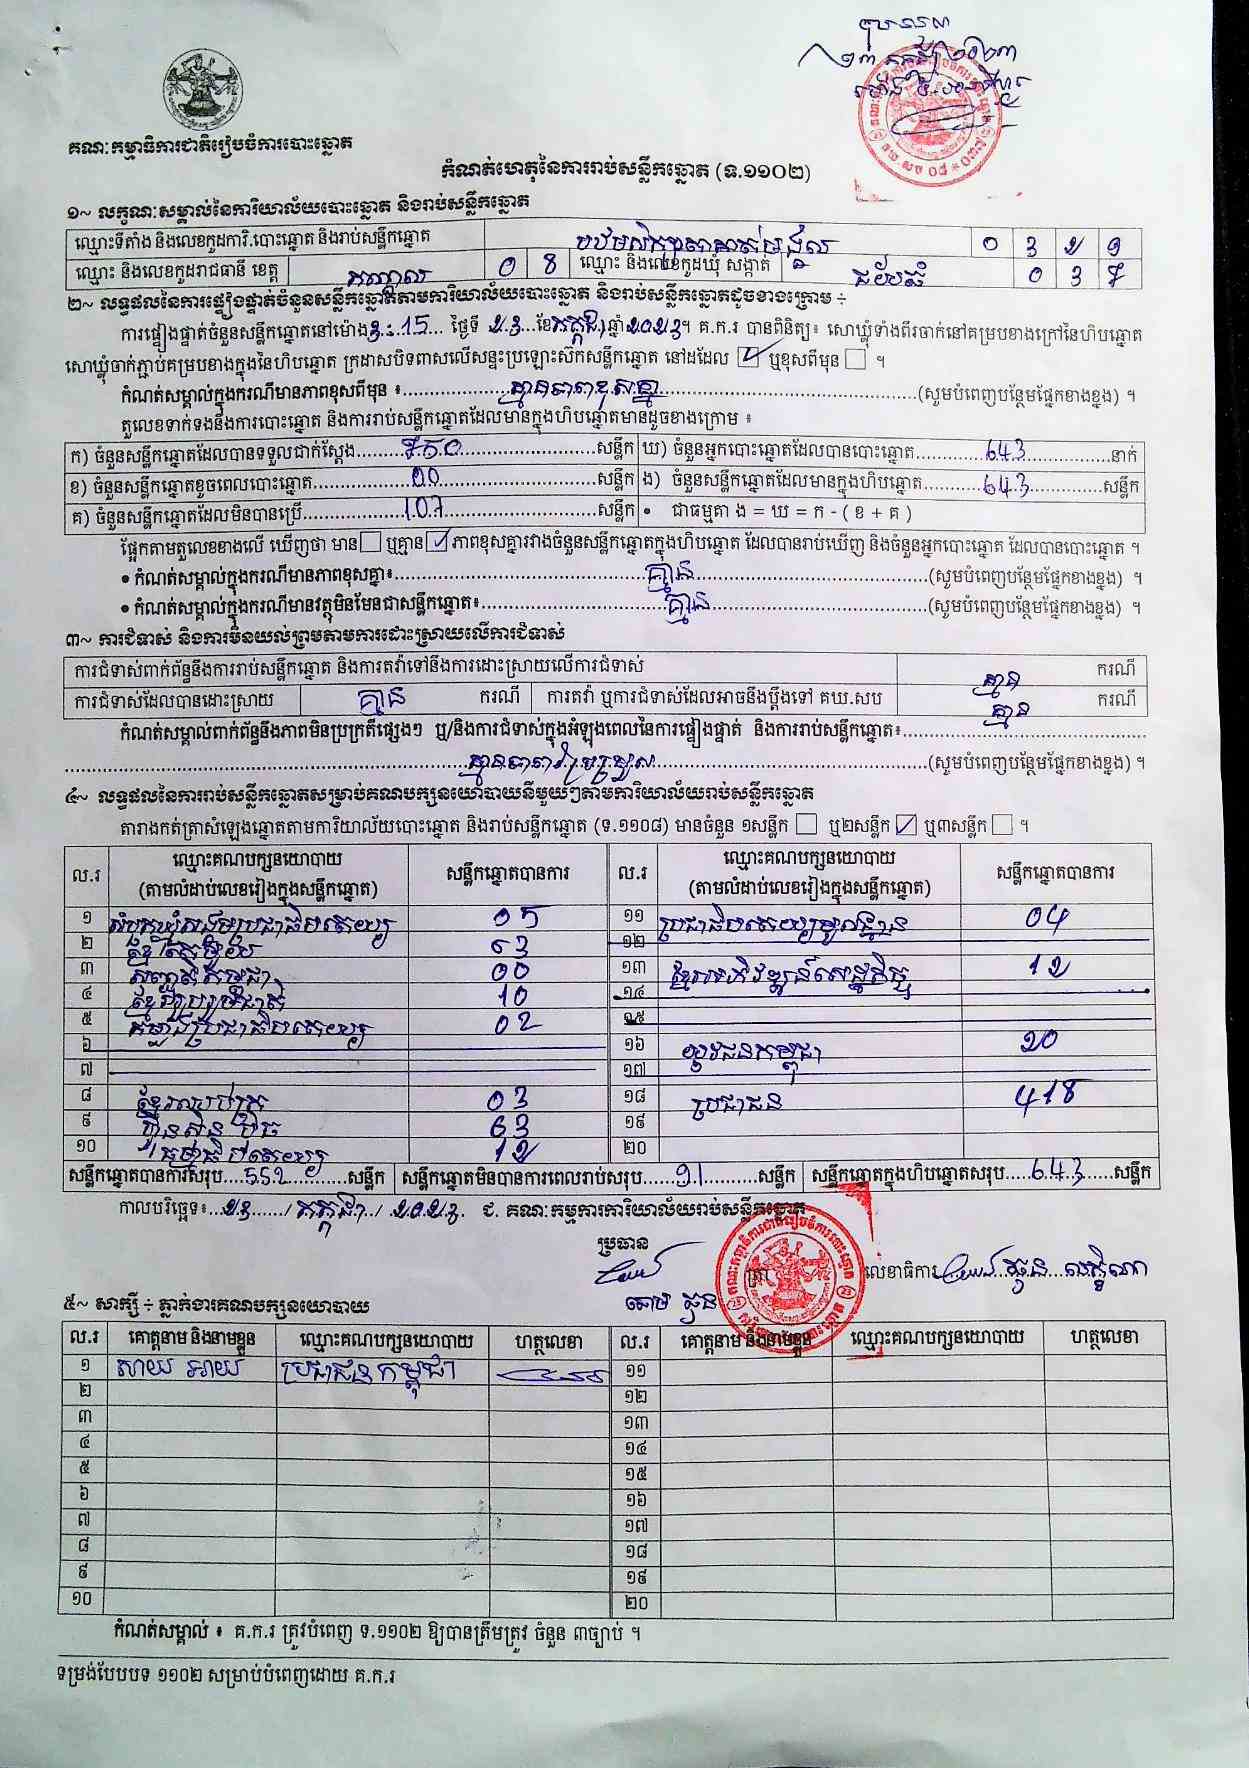 គណៈកម្មាធិការជាតិរៀបចំការបោះឆ្នោត
កំណត់ហេតុនៃការរាប់សន្លឹកឆ្នោត (ទ.១១០២)
១~ លក្ខណៈសម្គាល់នៃការិយាល័យបោះឆ្នោត និងរាប់សន្លឹកឆ្នោត
ឈ្មោះទីតាំង និងលេខកូដការិ.បោះឆ្នោត និងរាប់សន្លឹកឆ្នោត
ឈ្មោះ និងលេខកូដរាជធានី ខេត្ត កណ្តាល 0 8 ឈ្មោះ និងលេខកូដឃុំ សង្កាត់ 0 3 7
២~ លទ្ធផលនៃការផ្ទៀងផ្ទាត់ចំនួនសន្លឹកឆ្នោតតាមការិយាល័យបោះឆ្នោត និងរាប់សន្លឹកឆ្នោតដូចខាងក្រោម ÷
ការផ្ទៀងផ្ទាត់ចំនួនសន្លឹកឆ្នោតនៅម៉ោង 3:15 ថ្ងៃទី 23 ខែ កក្កដា ឆ្នាំ 2023 ។ គ.ក.រ បានពិនិត្យ៖ សោឃ្លុំទាំងពីរចាក់នៅគម្របខាងក្រៅនៃហិបឆ្នោត
សោឃ្លុំចាក់ភ្ជាប់គម្របខាងក្នុងនៃហិបឆ្នោត ក្រដាសបិទពាសលើសន្ទះប្រឡោះស៊កសន្លឹកឆ្នោត នៅដដែល ☑ ឬខុសពីមុន ☐ ។
កំណត់សម្គាល់ក្នុងករណីមានភាពខុសពីមុន ៖ គ្មានភាពខុសគ្នា (សូមបំពេញបន្ថែមផ្នែកខាងខ្នង) ។
តួលេខទាក់ទងនឹងការបោះឆ្នោត និងការរាប់សន្លឹកឆ្នោតដែលមានក្នុងហិបឆ្នោតមានដូចខាងក្រោម ៖
ក) ចំនួនសន្លឹកឆ្នោតដែលបានទទួលជាក់ស្តែង 750 សន្លឹក ឃ) ចំនួនអ្នកបោះឆ្នោតដែលបានបោះឆ្នោត 643 នាក់
ខ) ចំនួនសន្លឹកឆ្នោតខូចពេលបោះឆ្នោត 00 សន្លឹក ង) ចំនួនសន្លឹកឆ្នោតដែលមានក្នុងហិបឆ្នោត 643 សន្លឹក
គ) ចំនួនសន្លឹកឆ្នោតដែលមិនបានប្រើ 107 សន្លឹក • ជាធម្មតា ង = ឃ = ក - ( ខ + គ )
ផ្អែកតាមតួលេខខាងលើ ឃើញថា មាន ☐ ឬគ្មាន ☑ ភាពខុសគ្នារវាងចំនួនសន្លឹកឆ្នោតក្នុងហិបឆ្នោត ដែលបានរាប់ឃើញ និងចំនួនអ្នកបោះឆ្នោត ដែលបានបោះឆ្នោត ។
• កំណត់សម្គាល់ក្នុងករណីមានភាពខុសគ្នា៖ គ្មាន (សូមបំពេញបន្ថែមផ្នែកខាងខ្នង) ។
• កំណត់សម្គាល់ក្នុងករណីមានវត្ថុមិនមែនជាសន្លឹកឆ្នោត៖ គ្មាន (សូមបំពេញបន្ថែមផ្នែកខាងខ្នង) ។
៣~ ការជំទាស់ និងការមិនយល់ព្រមតាមការដោះស្រាយលើការជំទាស់
ការជំទាស់ពាក់ព័ន្ធនឹងការរាប់សន្លឹកឆ្នោត និងការតវ៉ាទៅនឹងការដោះស្រាយលើការជំទាស់ គ្មាន ករណី
ការជំទាស់ដែលបានដោះស្រាយ គ្មាន ករណី ការតវ៉ា ឬការជំទាស់ដែលអាចនឹងប្តឹងទៅ គឃ.សប គ្មាន ករណី
កំណត់សម្គាល់ពាក់ព័ន្ធនឹងភាពមិនប្រក្រតីផ្សេងៗ ឬ/និងការជំទាស់ក្នុងអំឡុងពេលនៃការផ្ទៀងផ្ទាត់ និងការរាប់សន្លឹកឆ្នោត៖
(សូមបំពេញបន្ថែមផ្នែកខាងខ្នង) ។
៤~ លទ្ធផលនៃការរាប់សន្លឹកឆ្នោតសម្រាប់គណបក្សនយោបាយនីមួយៗតាមការិយាល័យរាប់សន្លឹកឆ្នោត
តារាងកត់ត្រាសំឡេងឆ្នោតតាមការិយាល័យបោះឆ្នោត និងរាប់សន្លឹកឆ្នោត (ទ.១១០៨) មានចំនួន ១សន្លឹក ☐ ឬ២សន្លឹក ☑ ឬ៣សន្លឹក ☐ ។
ល.រ ឈ្មោះគណបក្សនយោបាយ (តាមលំដាប់លេខរៀងក្នុងសន្លឹកឆ្នោត) សន្លឹកឆ្នោតបានការ ល.រ ឈ្មោះគណបក្សនយោបាយ (តាមលំដាប់លេខរៀងក្នុងសន្លឹកឆ្នោត) សន្លឹកឆ្នោតបានការ
១ សំបុកឃ្មុំសង្គមប្រជាធិបតេយ្យ 05 ១១ ប្រជាធិបតេយ្យមូលដ្ឋាន 04
២ ខ្មែរតែមួយ 03 ១២
៣ សញ្ជាតិកម្ពុជា 00 ១៣ ខ្មែរអភិវឌ្ឍន៍សេដ្ឋកិច្ច 12
៤ 10 ១៤
៥ កម្លាំងប្រជាធិបតេយ្យ 02 ១៥
៦ ១៦ យុវជនកម្ពុជា 20
៧ ១៧
៨ ខ្មែររួបរួម 03 ១៨ ប្រជាជន 418
៩ ហ្វ៊ុនស៊ិនប៉ិច 63 ១៩
១០ 12 ២០
សន្លឹកឆ្នោតបានការសរុប 552 សន្លឹក សន្លឹកឆ្នោតមិនបានការពេលរាប់សរុប 91 សន្លឹក សន្លឹកឆ្នោតក្នុងហិបឆ្នោតសរុប 643 សន្លឹក
កាលបរិច្ឆេទ៖ 23 / កក្កដា / 2023 ជ. គណៈកម្មការការិយាល័យរាប់សន្លឹកឆ្នោត
ប្រធាន ត្រា លេខាធិការ
៥~ សាក្សី ÷ ភ្នាក់ងារគណបក្សនយោបាយ
ល.រ គោត្តនាម និងនាមខ្លួន ឈ្មោះគណបក្សនយោបាយ ហត្ថលេខា ល.រ គោត្តនាម និងនាមខ្លួន ឈ្មោះគណបក្សនយោបាយ ហត្ថលេខា
១ សាយ អាយ ប្រជាជនកម្ពុជា ១១
២ ១២
៣ ១៣
៤ ១៤
៥ ១៥
៦ ១៦
៧ ១៧
៨ ១៨
៩ ១៩
១០ ២០
កំណត់សម្គាល់ ៖ គ.ក.រ ត្រូវបំពេញ ទ.១១០២ ឱ្យបានត្រឹមត្រូវ ចំនួន ៣ច្បាប់ ។
ទម្រង់បែបបទ ១១០២ សម្រាប់បំពេញដោយ គ.ក.រ